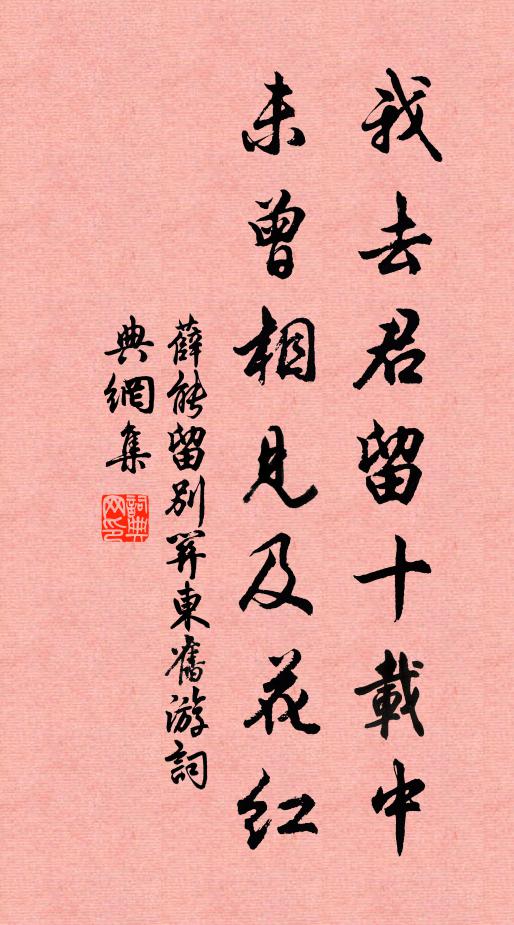 我去君留十載中
未曾相見及花紅
薛能留別關東舊游詞
典網集
詞典網印